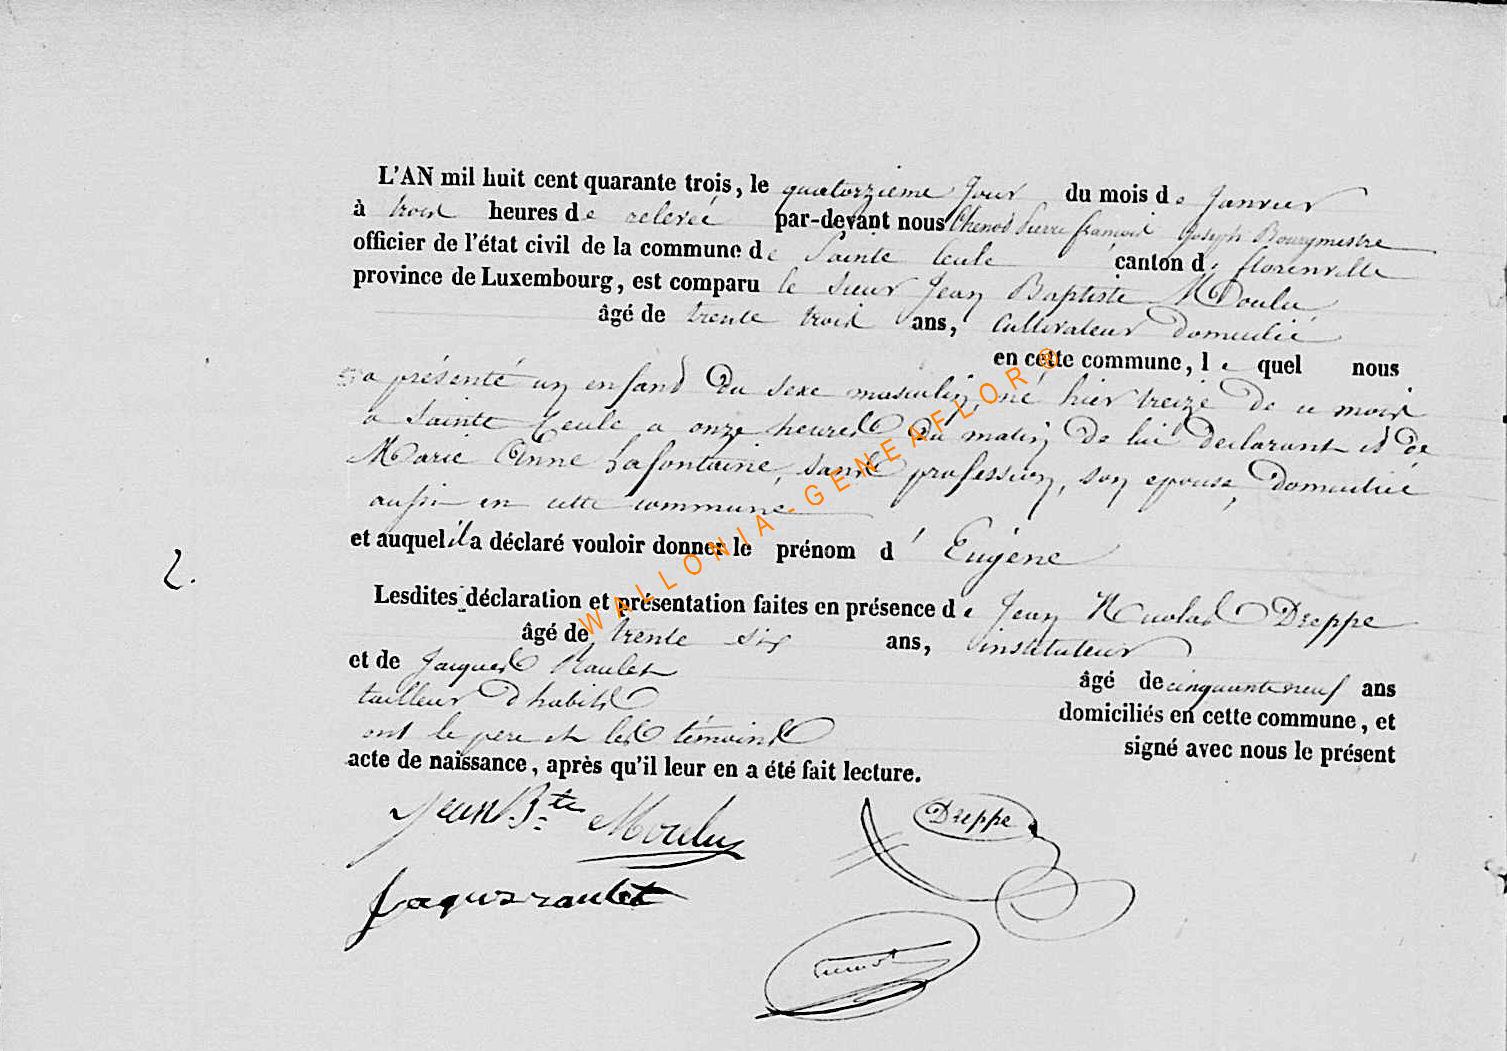 L'AN mil huit cent quarante trois, le quatorzieme jour du mois de Janvier
à trois heures de relevée par-devant nous Chenot Pierre françois Joseph Bourgmestre
officier de l'état civil de la commune de Sainte Cecile canton de florenville
province de Luxembourg, est comparu le sieur Jean Baptiste Moulu
âgé de trente trois ans, cultivateur domicilié
en cette commune, le quel nous
a présenté un enfand du sexe masculin, né hier treize de ce mois
a Sainte Cecile a onze heures du matin de lui declarant et de
Marie Anne Lafontaine, sans profession, son epouse, domiciliée
aussi en cette commune
et auquel il a déclaré vouloir donner le prénom d' Eugène
2.
Lesdites déclaration et présentation faites en présence de Jean Nicolas Dreppe
âgé de trente six ans, instituteur
et de Jacques Raulet âgé de cinquante neuf ans
tailleur d'habits domiciliés en cette commune, et
ont le pere et les témoins signé avec nous le présent
acte de naissance, après qu'il leur en a été fait lecture.
Jean Bte Moulu Dreppe
Jaques raulet
WALLONIA-GENEAFLOR®